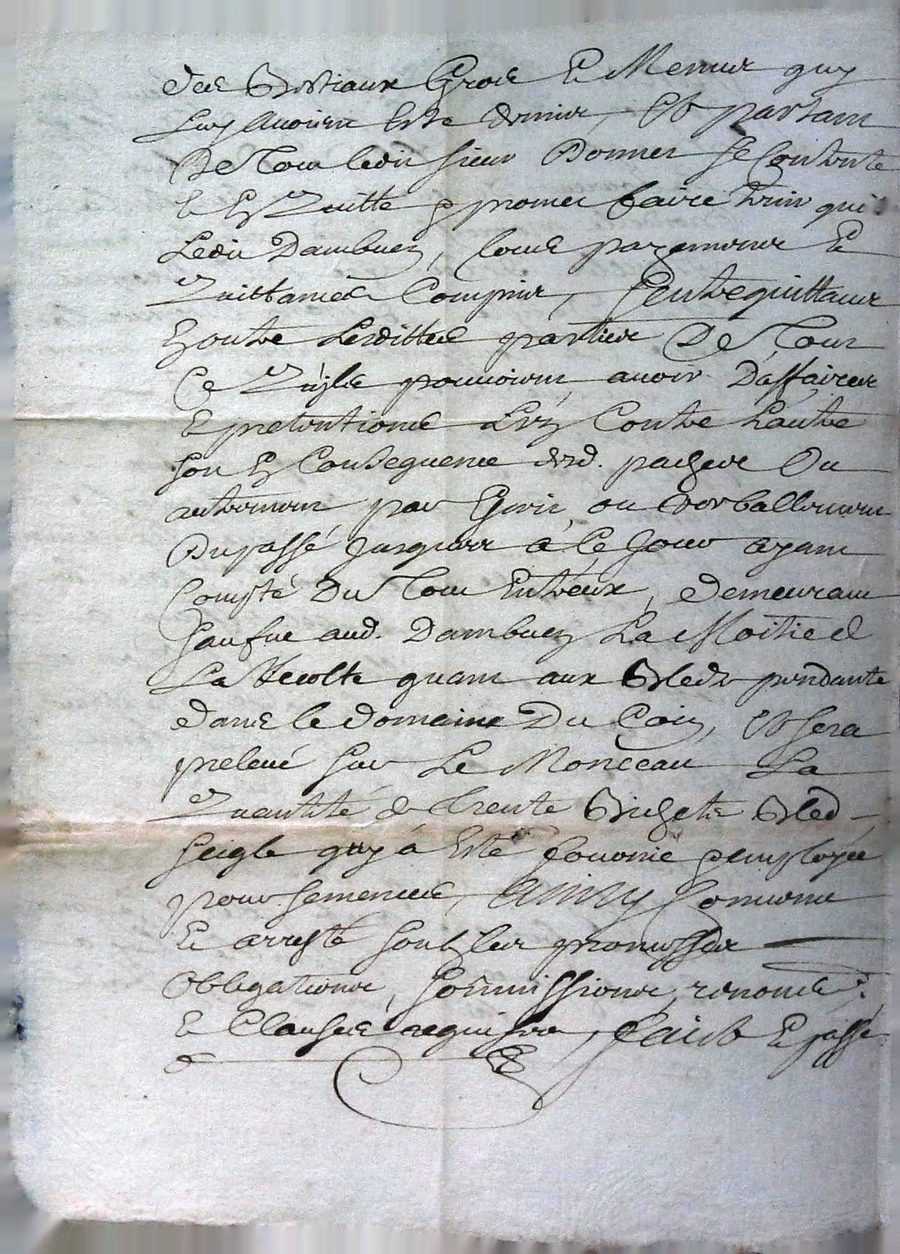 des Bestiaux Gros Et Menus quy
Luy Avoient Esté donné, Et partant
De Tout ledit sieur Bonnet se Contente
Et En Quitte & promet faire tenir quitte
Ledit Dambuez, sous payemens Et
Quittances Compris, S'entrequittant
En outre Lesdittes parties De Tout
Ce Qu'elles pouvoient avoir D'affaires
Et pretentions L'un Contre L'autre
soit En Consequence desd. pactes Ou
autrement par Escrit, ou Verballement
Du passé jusques à Ce Jour ayant
Compté Du Tout Entreux, demeurant
sauf aud. Dambuez La Moitié de
La Recolte quant aux Bleds pendants
dans le domaine Du Coin, Et sera
prelevé sur Le Monceau La
Quantité de Trente Bichets Bled
seigle quy a Esté fourni & employé
pour semences, Ainsy Convenu
Et arresté soub leur promesses
Obligations, soumissions, renonc.
Et Clauses requises, Fait Et passé